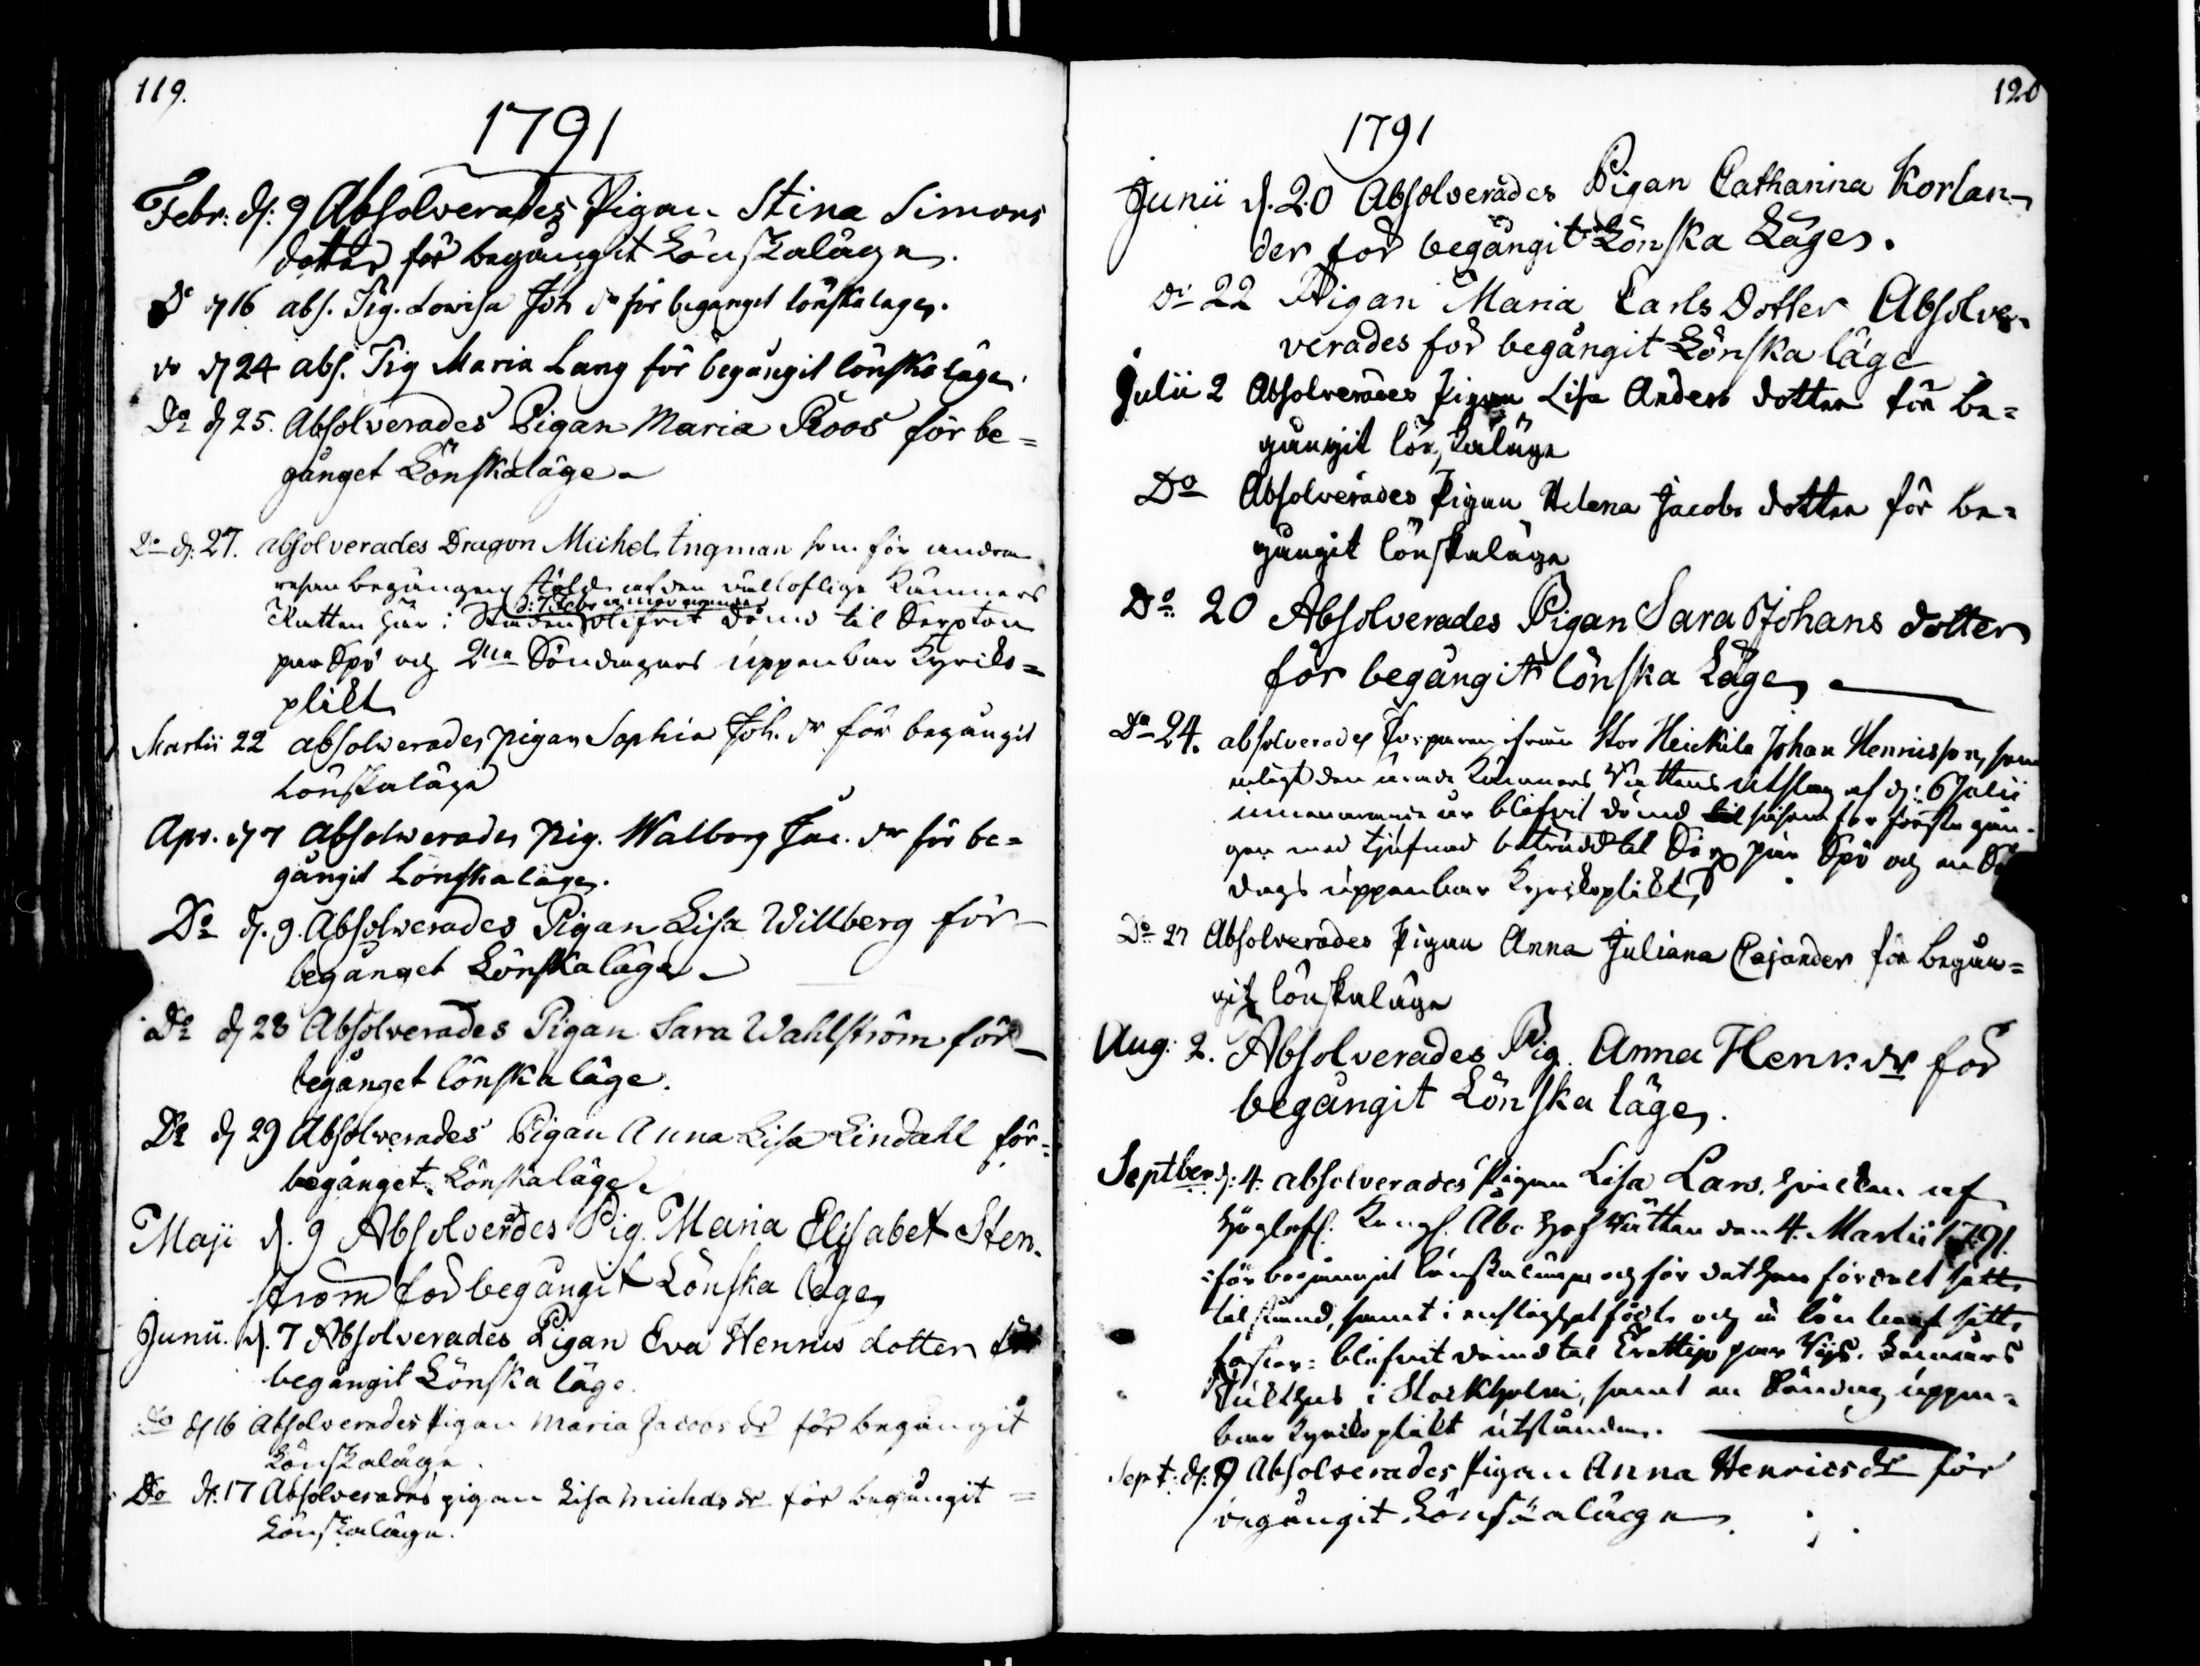 119.
1791
Febr: d: 9 Absolverades Pigan Stina Simons
dotter för begångit Lönskaläge.
Do d 16 abs. Pig. Lovisa Joh dr för begånget lönskalage.
do d 24 abs. Pig Maria Lang för begångit lönskaläge.
Do d 25. Absolverades Pigan Maria Roos för be=
gånget Lönskaläge.
Do d: 27. absolverades Dragon Michel Ingman som för andra
resan begången stöld af den välloflige Kämners
d: 7 Febr
Rätten här i Staden blifvit dömd til Sexton
par Spö och 2ne Söndagars uppenbar Kyrko=
plikt
Martii 22 absolverades pigan Sophia Joh. dr för begångit
Lönskaläge
Apr. d 7 absolverades Pig. Walborg Jac. dr för be=
gångit Lönskaläge.
Do d. 9. Absolverades Pigan Lisa Willberg för
begånget Lönskaläge.
Do d 28 Absolverades Pigan Sara Wahlström för
begånget lönskaläge.
Do d 29 Absolverades Pigan Anna Lisa Lindahl för=
begånget Lönskaläge.
Maji d. 9 Absolverades Pig. Maria Elisabet Sten-
ström för begångit Lönska läge
Junii. d. 7 Absolverades Pigan Eva Hennis dotter för
begångit Lönska läge.
Do d 16 Absolverades Pigan Maria Jacobs dr för begångit
Lönskaläge.
Do d. 17 Absolverades pigan Lisa Michels dr för begångit =
Lönskaläge.
120
1791
Junii d. 20 Absolverades Pigan Catharina Korlan-
der för begångit Lönska Läge.
do 22 Pigan Maria Carls Dotter Absolve-
verades för begångit Lönska läge
Julii 2 Absolverades Pigan Lisa Anders dotter för be=
gångit lönskaläge
Do Absolverades Pigan Helena Jacobs dotter för be=
gångit lönskaläge
Do 20 Absolverades Pigan Sara Johans dotter
för begångit lönska Läge
Do 24. absolverades ifrån Stor Heickila Johan Hennisson, som
enligt den Kämners Rättens utslag af d: 6 Julii
innevarande år blifvit dömd til för första gån-
gen med tjufnad beträdd til Sex par Spö och en
dags uppenbar Kyrkoplikt
Do 27 Absolverades Pigan Anna Juliana Cajander för begån=
git lönskaläge
Aug: 2. Absolverades Pig. Anna Henr. dr för
begångit Lönska läge.
Septber d: 4. absolverades Pigan Lisa Lars. hvilken af
Höglofl. Kongl. Åbo Hof Rätten den 4. Martii 1791.
för begångit lönskaläge och för det hon fördolt sitt
tilstånd, samt i enslighet födt och å lön lagt sitt
foster: blifvit dömd til Trettijo par Rijs.
Tukthus i Stockholm, samt en Söndag uppen=
bar Kyrkoplikt utstånden.
Sept: d: 9 Absolverades Pigan Anna Henrics dr för
begångit Lönskaläge.